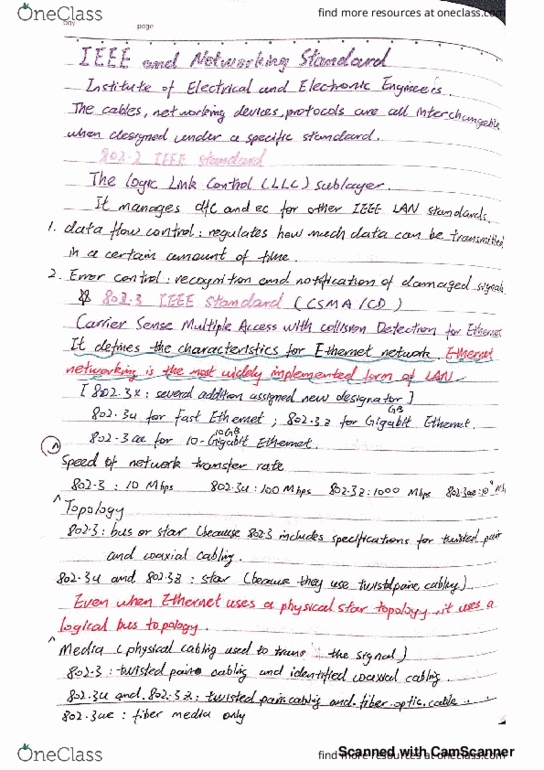 OneClass
find more resources at oneclass.com
page
IEEE and Networking Standard
Institute of Electrical and Electronic Engineers.
The cables, networking devices, protocols are all interchangeable
when designed under a specific standard.
802.2 IEEE standard
The logic Link Control (LLC) sublayer.
It manages dfc and ec for other IEEE LAN standards.
1. data flow control : regulates how much data can be transmitted
in a certain amount of time.
2. Error control : recognition and notification of damaged signals
802.3 IEEE Standard (CSMA/CD)
Carrier Sense Multiple Access with collision Detection for Ethernet
It defines the characteristics for Ethernet network. Ethernet
networking is the most widely implemented form of LAN.
[802.3x : several addition assigned new designator]
802.3u for Fast Ethernet ; 802.3z for Gigabit Ethernet. GB
802.3ae for 10-Gigabit Ethernet. 10GB
Speed of network transfer rate
802.3 : 10 Mbps 802.3u : 100 Mbps 802.3z : 1000 Mbps 802.3ae :
^ Topology
802.3 : bus or star (because 802.3 includes specifications for twisted pair
and coaxial cabling.
802.3u and 802.3z : star (because they use twistedpaire cabling)
Even when Ethernet uses a physical star topology, it uses a
logical bus topology.
^ Media (physical cabling used to trans the signal)
802.3 : twisted paire cabling and identified coaxial cabling.
802.3u and 802.3z : twisted pair cabling and fiber optic cable.
802.3ae : fiber media only
OneClass
find more resources at oneclass.com
Scanned with CamScanner